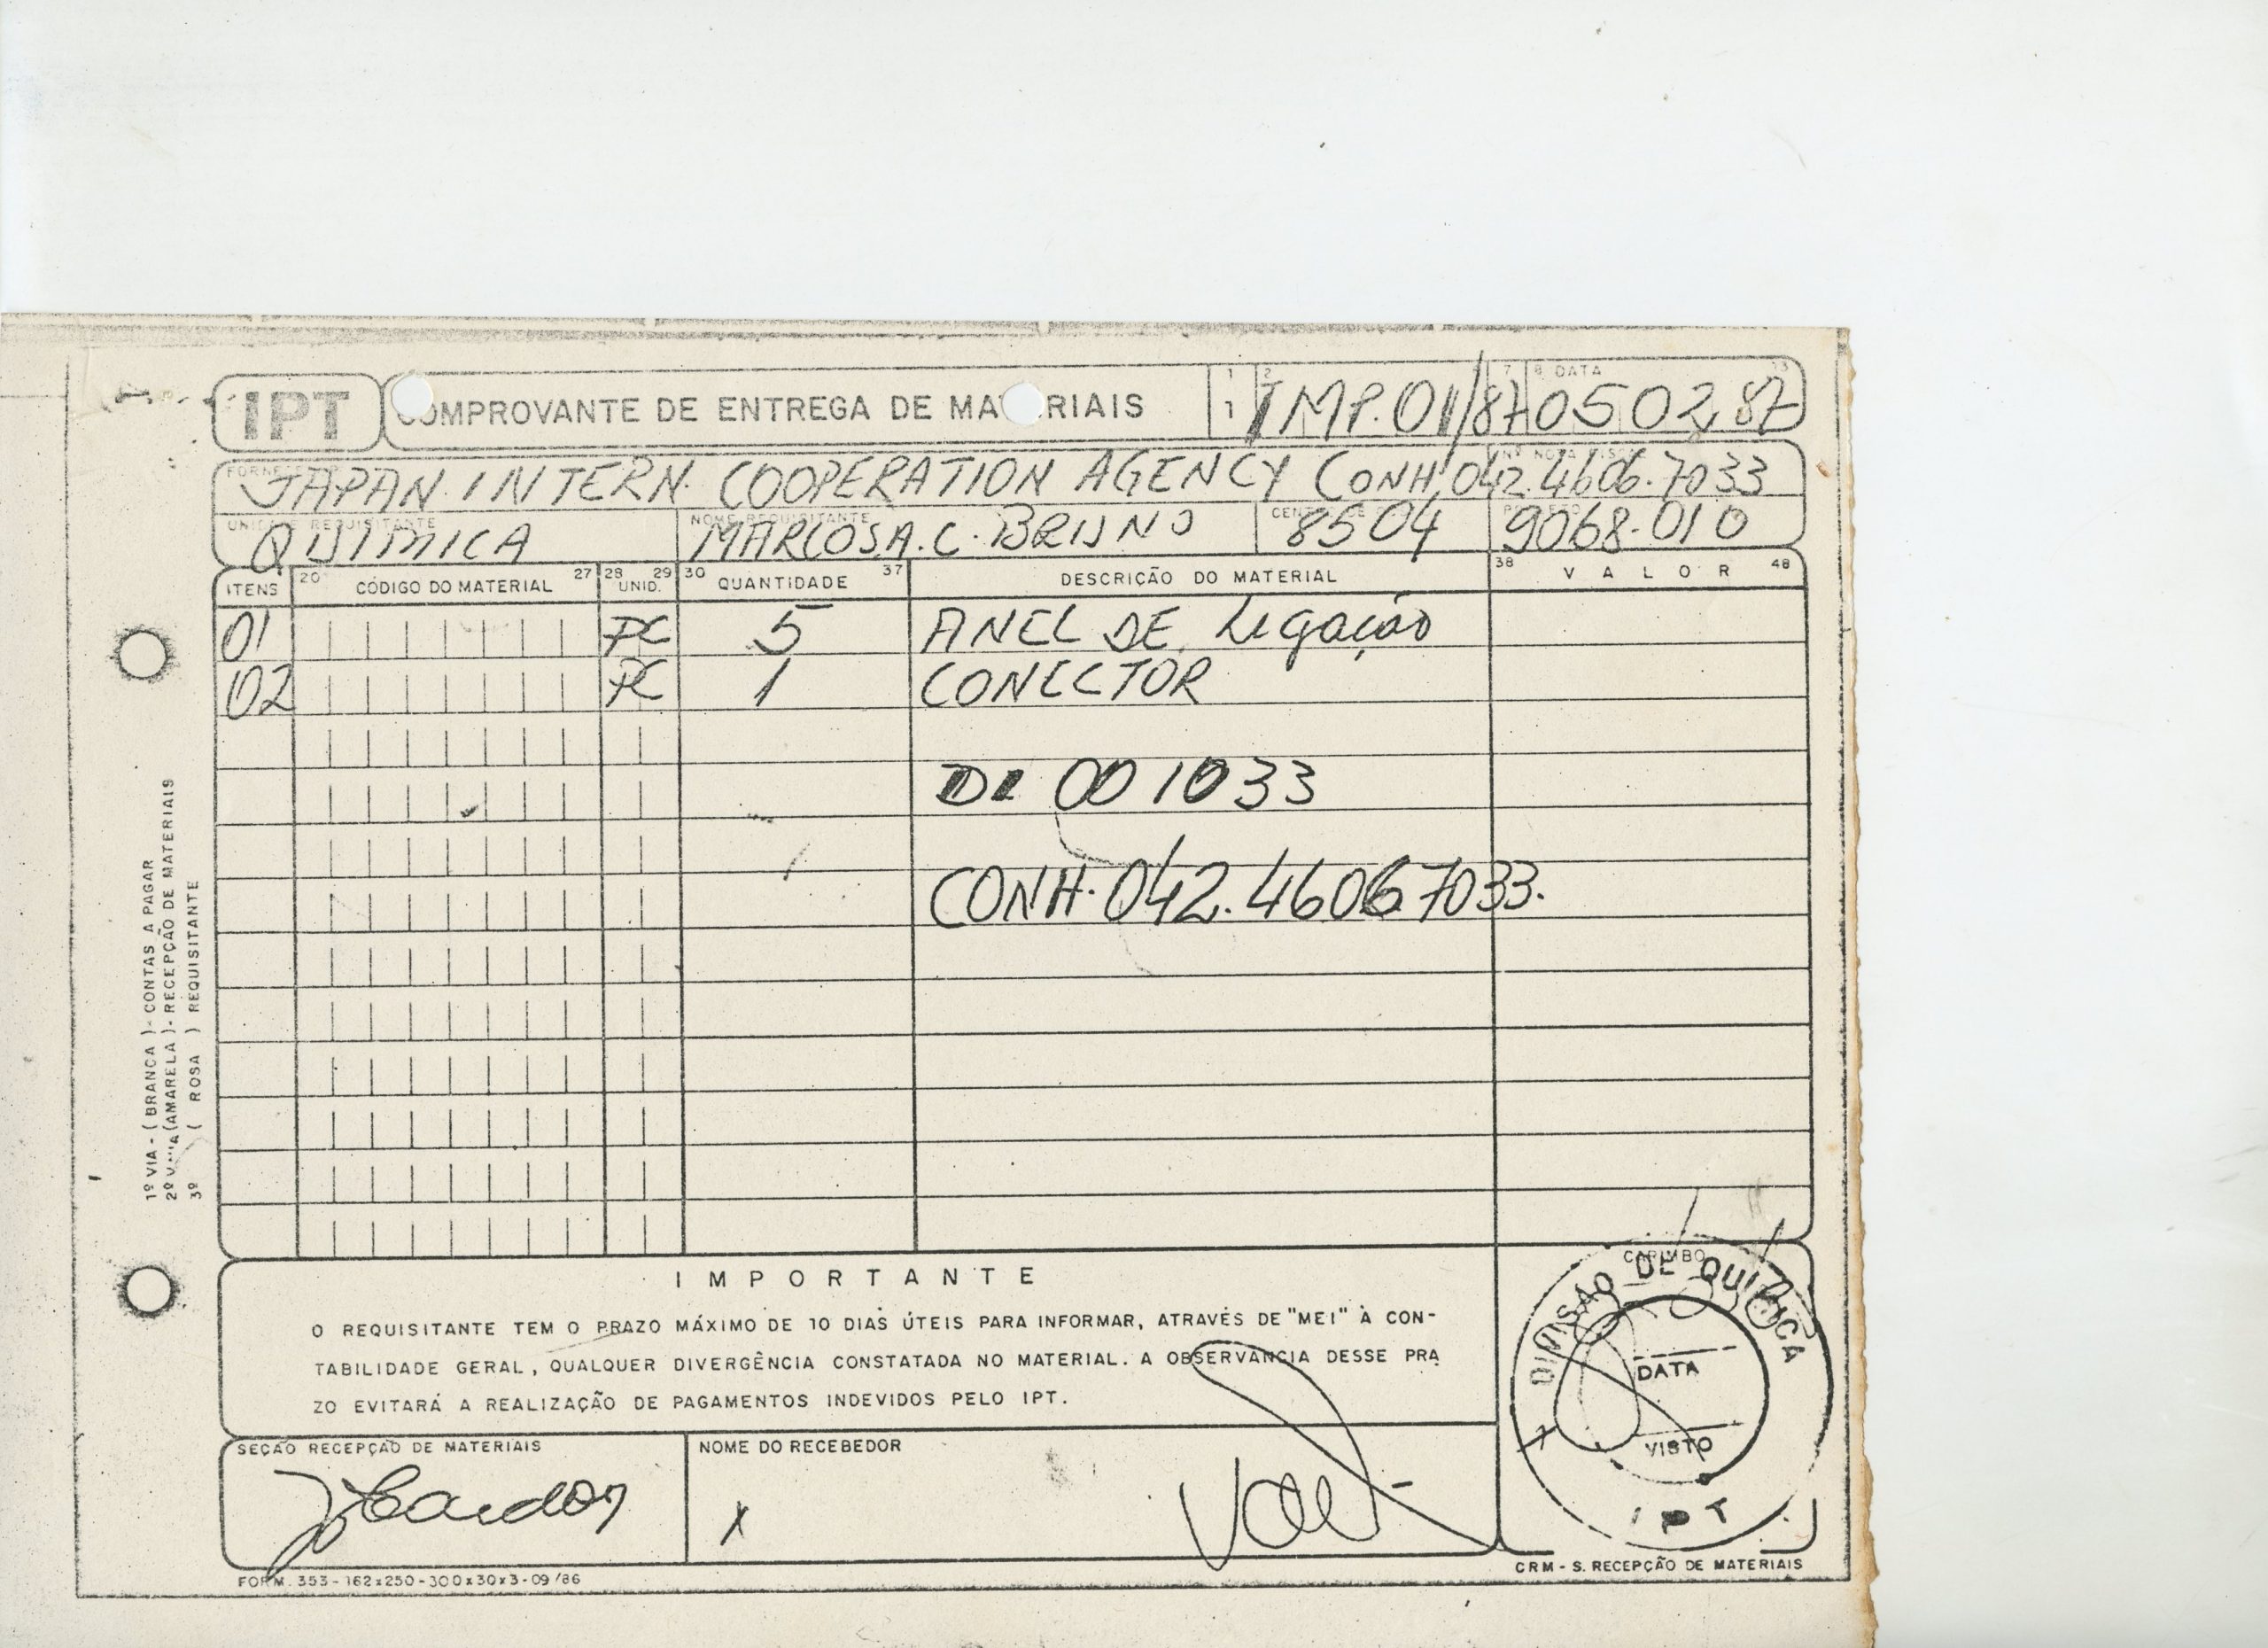 IPT COMPROVANTE DE ENTREGA DE MATERIAIS 1 1 2 IMP.01/87 7 8 DATA 13 050287
FORNECEDOR Nº NOTA FISCAL
JAPAN. INTERN. COOPERATION AGENCY CONH. 042.4606.7033
UNIDADE REQUISITANTE NOME REQUISITANTE
QUIMICA MARCOS A. C. BRUNO 8504 9068-010
ITENS 20 CÓDIGO DO MATERIAL 27 28 UNID. 29 30 QUANTIDADE 37 DESCRIÇÃO DO MATERIAL 38 VALOR 48
01 PC 5 ANEL DE Ligação
02 PC 1 CONECTOR
DI 001033
CONH. 042.46067033.
1º VIA - ( BRANCA ) - CONTAS A PAGAR
2º VIA (AMARELA ) - RECEPÇÃO DE MATERIAIS
3º ( ROSA ) REQUISITANTE
IMPORTANTE
O REQUISITANTE TEM O PRAZO MÁXIMO DE 10 DIAS ÚTEIS PARA INFORMAR, ATRAVÉS DE "MEI" À CON-
TABILIDADE GERAL, QUALQUER DIVERGÊNCIA CONSTATADA NO MATERIAL. A OBSERVANCIA DESSE PRA
ZO EVITARÁ A REALIZAÇÃO DE PAGAMENTOS INDEVIDOS PELO IPT.
CARIMBO
DIVISÃO DE QUIMICA
DATA
VISTO
IPT
SEÇÃO RECEPÇÃO DE MATERIAIS NOME DO RECEBEDOR
X
CRM - S. RECEPÇÃO DE MATERIAIS
FORM. 353 - 162x250 - 300x30x3 - 09/86